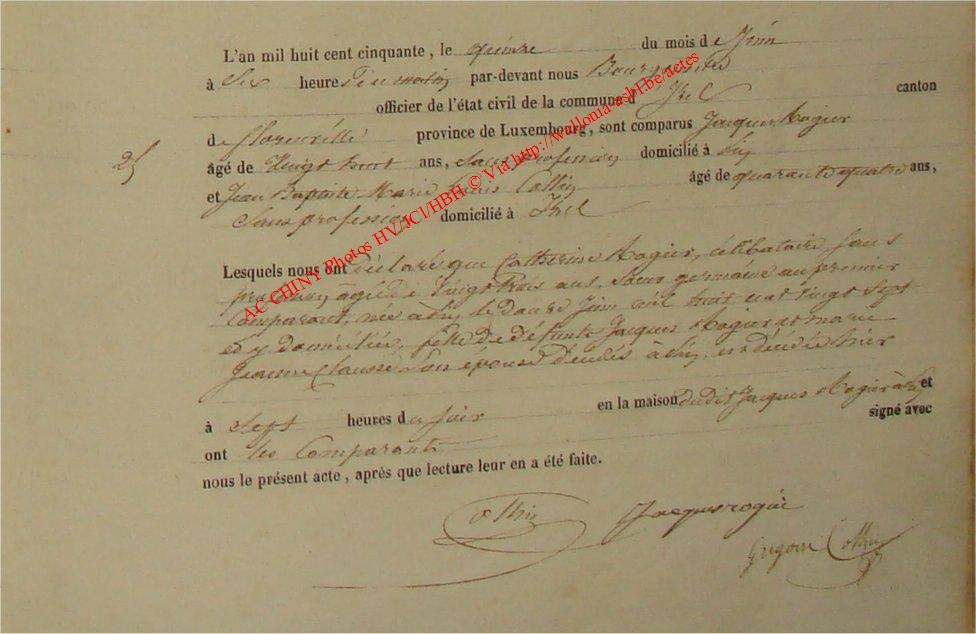 L'an mil huit cent cinquante, le quinze du mois de Juin
à Six heure du matin par-devant nous Bourgmestre
officier de l'état civil de la commune d'Izel canton
de florenville province de Luxembourg, sont comparus Jacques Rogier
25
âgé de Vingt huit ans, Sans profession domicilié à
et Jean Baptiste Marie Louis Collin âgé de quarante quatre ans,
Sans profession domicilié à Izel
AC CHINY Photos HV/JCl/HBH © Via http://wallonia-asbl.be/actes
Lesquels nous ont Déclaré que Catherine Rogier, célibataire, sans
profession, agée de Vingt trois ans, Soeur germaine au premier
Comparant, née à le douze Juin mil huit cent vingt Sept
et y domiciliée, fille de défunts Jacques Rogier et marie
Jeanne Son épouse décédés à est décédée hier
à Sept heures du soir en la maison dudit Jacques Rogier à et
ont les Comparants signé avec
nous le présent acte, après que lecture leur en a été faite.
Collin Jacques rogier
Gregoire Collin